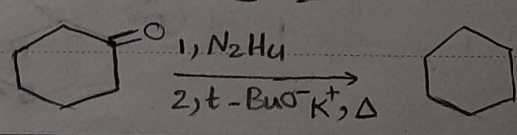 O
1, N₂H₄
2, t-BuO⁻ K⁺, Δ